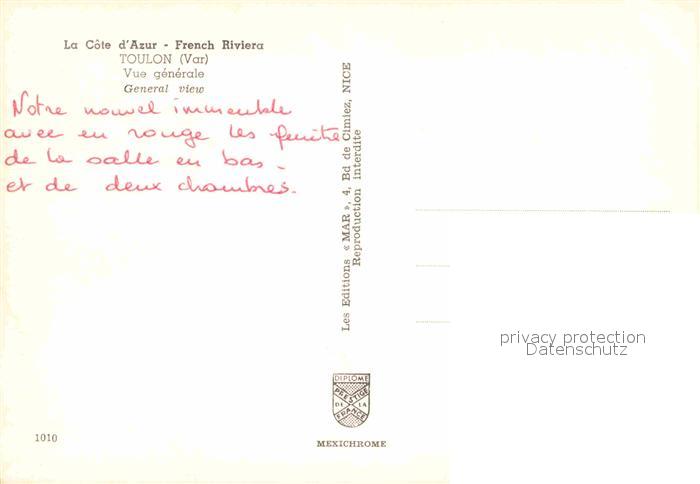 La Côte d'Azur - French Riviera
TOULON (Var)
Vue générale
General view
Notre nouvel immeuble
avec en rouge les fenêtre
de la salle en bas -
et de deux chambres.
Les Editions « MAR », 4, Bd de Cimiez, NICE
Reproduction interdite
privacy protection
Datenschutz
DIPLOME
PRESTIGE
DE LA
FRANCE
1010
MEXICHROME